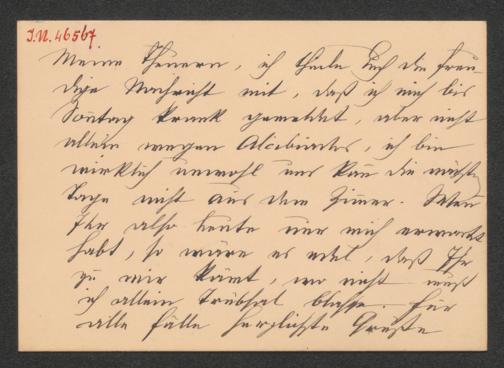 J.N. 46567
Meine Theuern, ich theile Euch die freu-
dige Nachricht mit, daß ich mich bis
Sonntag krank gemeldet, aber nicht
allein wegen Alcibiades, ich bin
wirklich unwohl und kann die nächsten
Tage nicht aus dem Zimmer. Wenn
Ihr also heute nur mich erwartet
habt, so wäre es edel, daß Ihr
zu mir kämt, wo nicht muß
ich allein Trübsal blasen. Für
alle Fälle herzlichste Grüße